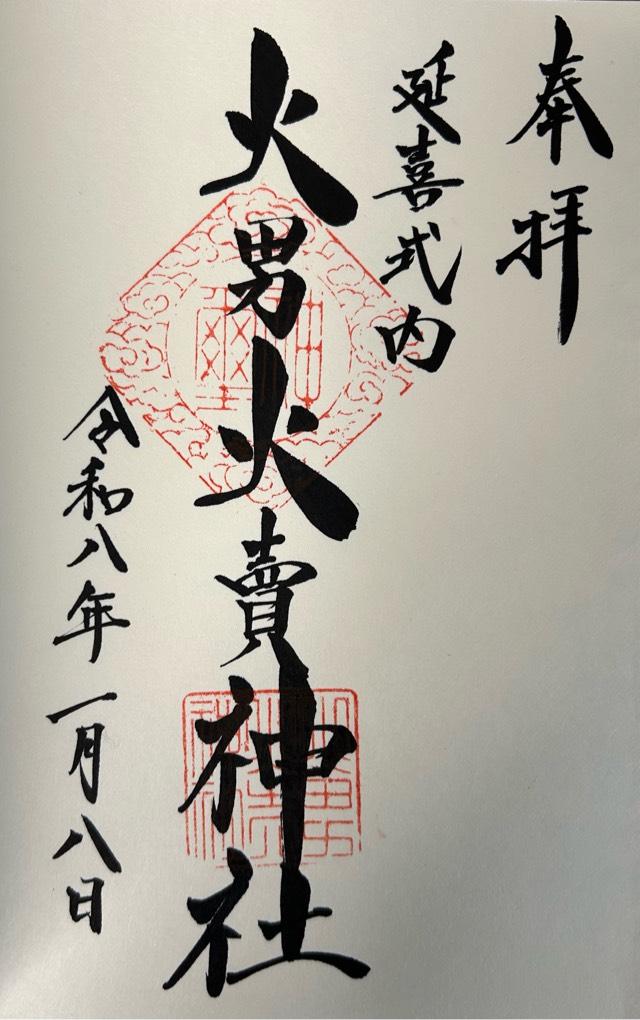 奉拝
延喜式内
火男火賣神社
令和八年一月八日